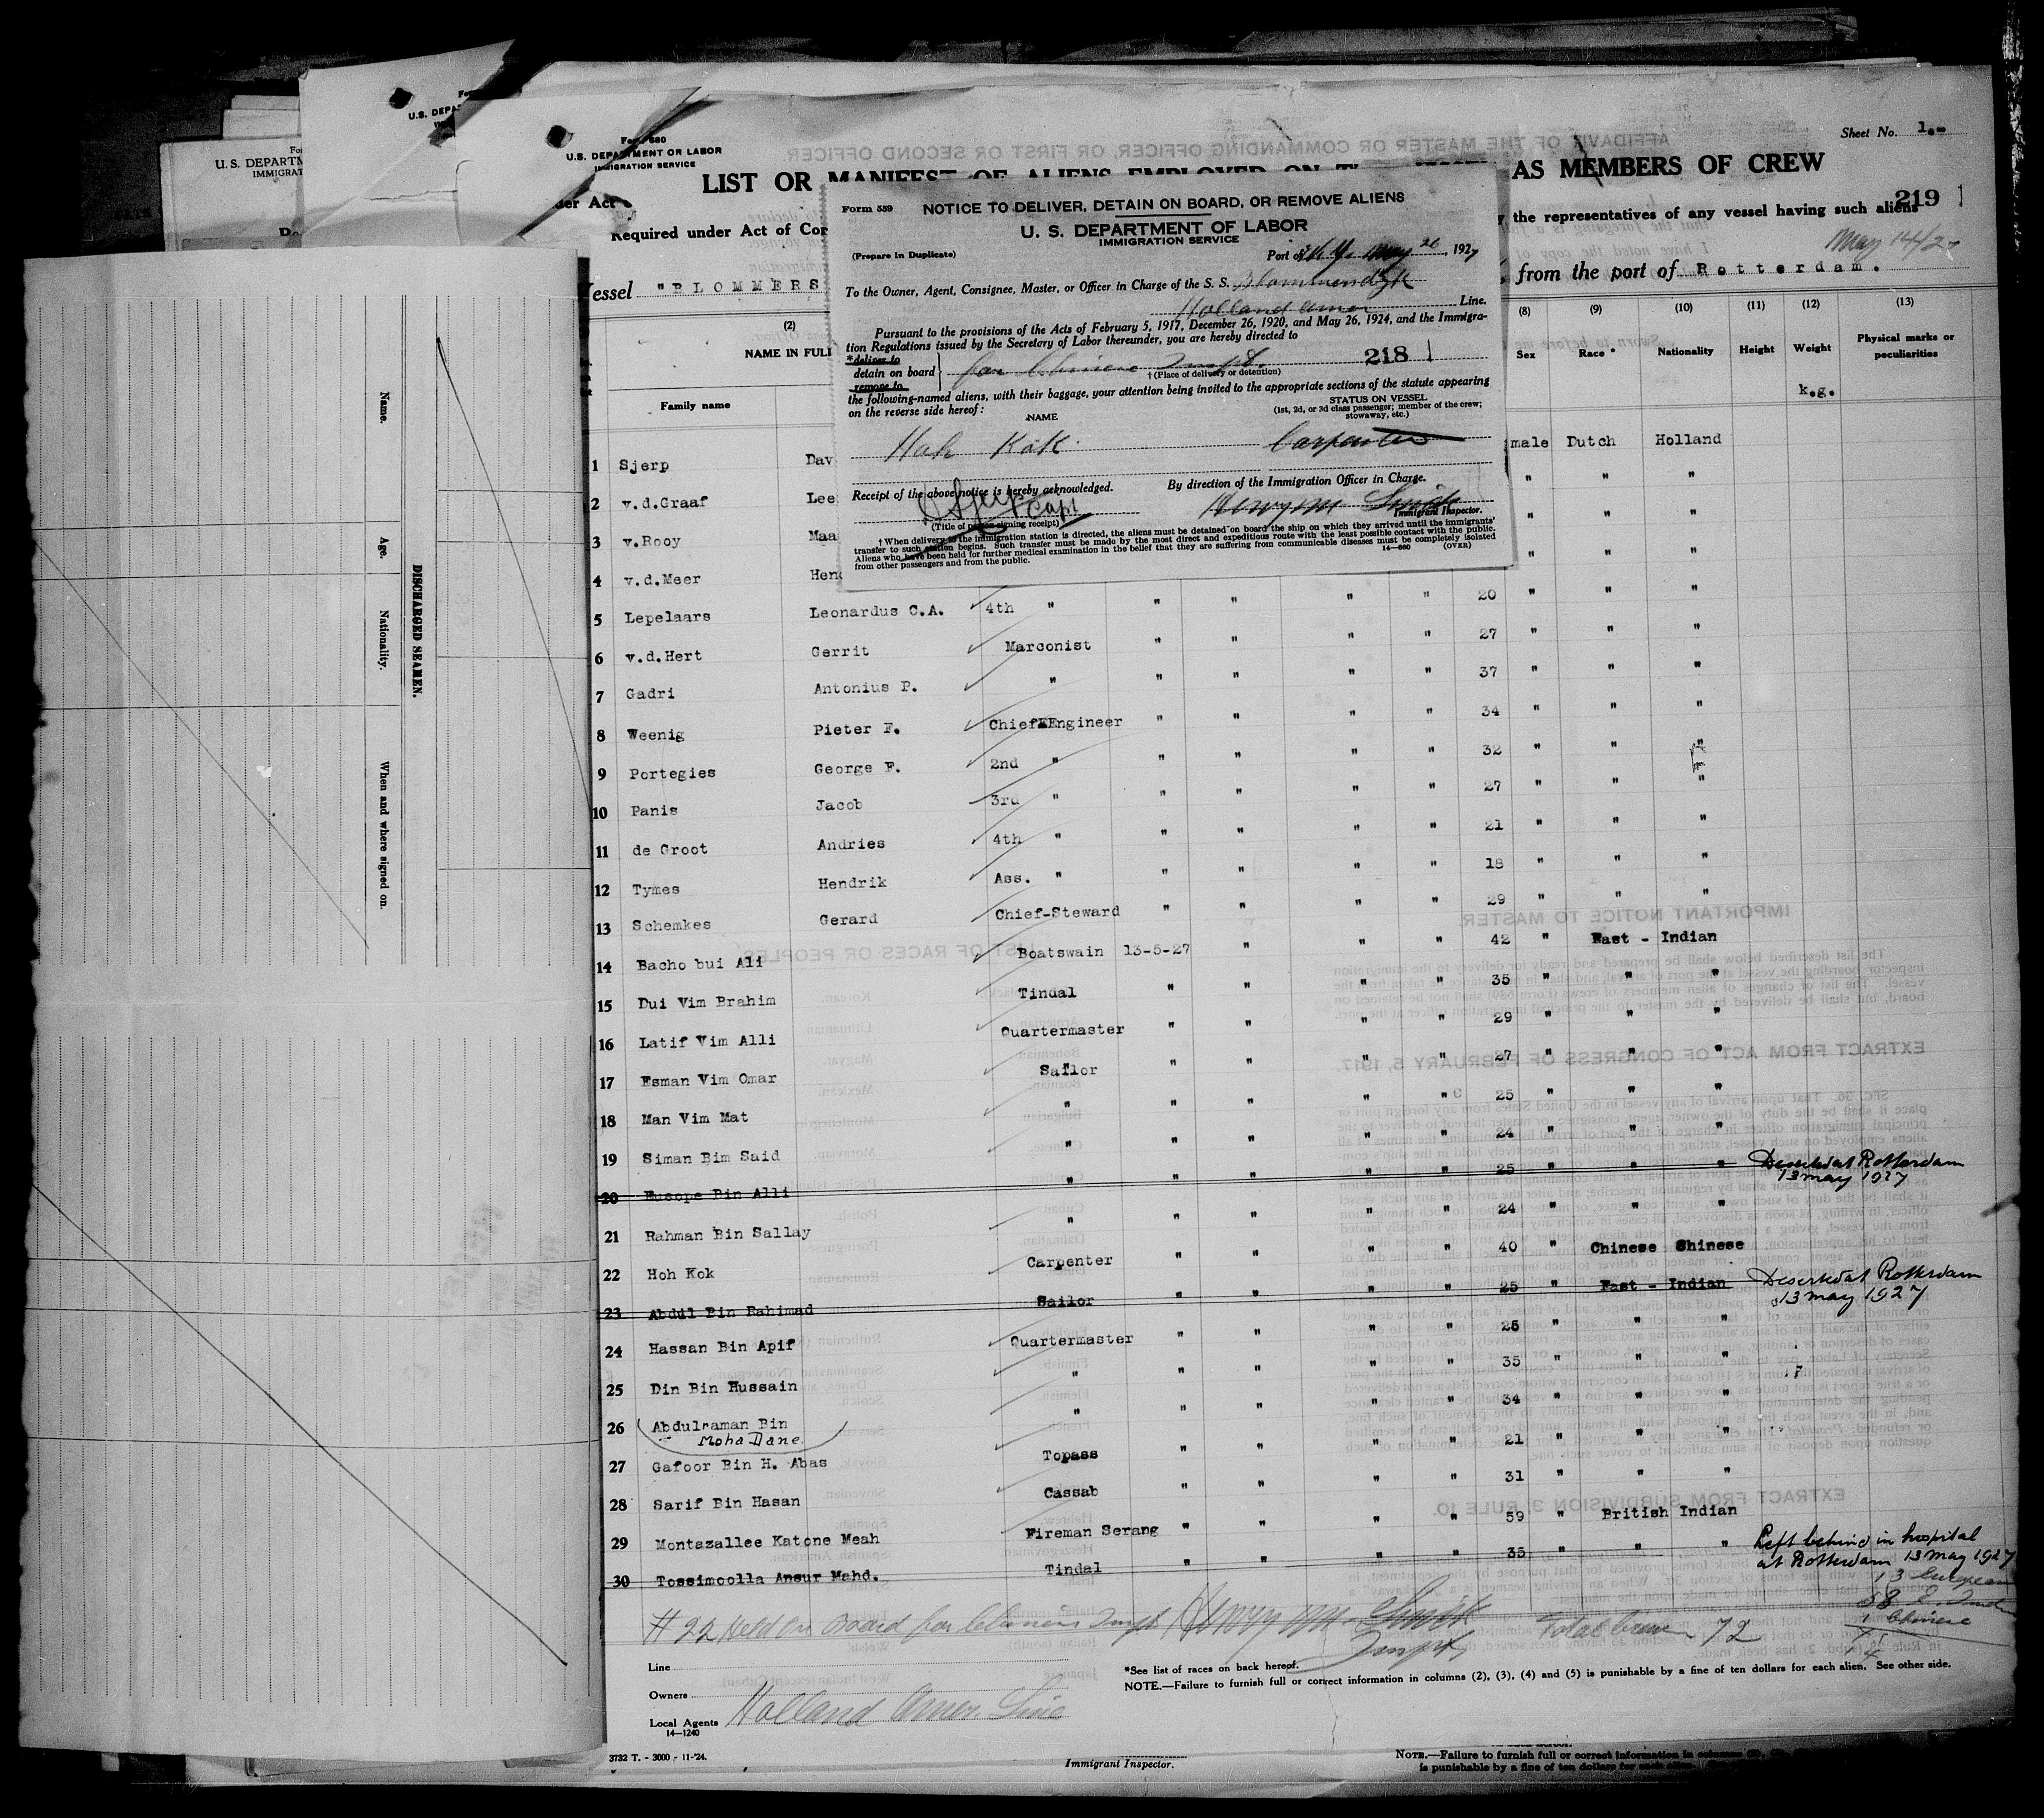 Form 680
U. S. DEPARTMENT OR LABOR
IMMIGRATION SERVICE
Sheet No. 1.
LIST OR MANIFEST OF ALIENS EMPLOYED ON AS MEMBERS OF CREW
219
Required under Act of Con the representatives of any vessel having such aliens
May 14/27
Vessel "BLOMMERS , from the port of Rotterdam.
Form 559
NOTICE TO DELIVER, DETAIN ON BOARD, OR REMOVE ALIENS
U. S. DEPARTMENT OF LABOR
IMMIGRATION SERVICE
(Prepare in Duplicate)
Port of N.Y. May 26, 1927
To the Owner, Agent, Consignee, Master, or Officer in Charge of the S. S. Blommersdyk
Holland Amer Line.
Pursuant to the provisions of the Acts of February 5, 1917, December 26, 1920, and May 26, 1924, and the Immigra-
tion Regulations issued by the Secretary of Labor thereunder, you are hereby directed to
*deliver to
detain on board for Chinese Inspt. 218
remove to
†(Place of delivery or detention)
the following-named aliens, with their baggage, your attention being invited to the appropriate sections of the statute appearing
on the reverse side hereof:
NAME
STATUS ON VESSEL
(1st, 2d, or 3d class passenger; member of the crew;
stowaway, etc.)
Hoh Kok Carpenter
Receipt of the above notice is hereby acknowledged. By direction of the Immigration Officer in Charge.
D Sjerp Capt Henry M Smith
(Title of person signing receipt) Immigrant Inspector.
†When delivery to the immigration station is directed, the aliens must be detained on board the ship on which they arrived until the immigrants'
transfer to such station begins. Such transfer must be made by the most direct and expeditious route with the least possible contact with the public.
Aliens who have been held for further medical examination in the belief that they are suffering from communicable diseases must be completely isolated
from other passengers and from the public.
14—660 (OVER)
(2) (8) (9) (10) (11) (12) (13)
NAME IN FULL
Family name
Sex Race * Nationality Height Weight Physical marks or
peculiarities
k.g.
1 Sjerp Dav male Dutch Holland
2 v.d.Graaf Lee " " "
3 v.Rooy Maa " " "
4 v.d.Meer Hen " " "
5 Lepelaars Leonardus C.A. 4th " " " " " 20 " " "
6 v.d.Hert Gerrit Marconist " " " " 27 " " "
7 Gadri Antonius P. " " " " " 37 " " "
8 Weenig Pieter F. Chief Engineer " " " " 34 " " "
9 Portegies George F. 2nd " " " " " 32 " " "
10 Panis Jacob 3rd " " " " " 27 " " "
11 de Groot Andries 4th " " " " " 21 " " "
12 Tymes Hendrik Ass. " " " " " 18 " " "
13 Schemkes Gerard Chief-Steward " " " " 29 " " "
14 Bacho bui Ali Boatswain 13-5-27 " " " 42 " East - Indian
15 Dui Vim Brahim Tindal " " " " 35 " " "
16 Latif Vim Alli Quartermaster " " " " 29 " " "
17 Esman Vim Omar Sailor " " " " 27 " " "
18 Man Vim Mat " " " " " 25 " " "
19 Siman Bim Said " " " " " 24 " " "
20 Eusope Bin Alli " " " " " 25 " " " Deserted at Rotterdam
13 may 1927
21 Rahman Bin Sallay " " " " " 24 " " "
22 Hoh Kok Carpenter " " " " 40 " Chinese Shinese
23 Abdul Bin Rahimad Sailor " " " " 25 " East - Indian Deserted at Rotterdam
13 may 1927
24 Hassan Bin Apif Quartermaster " " " " 25 " " "
25 Din Bin Hussain " " " " " 35 " "
26 Abdulraman Bin " " " " " 34 " " "
Moha Dane
27 Gafoor Bin H. Abas Topass " " " " 21 " " "
28 Sarif Bin Hasan Cassab " " " " 31 " " "
29 Montazallee Katone Meah Fireman Serang " " " " 59 " British Indian
30 Tossimoolla Ansur Mahd. Tindal " " " " 35 " " " Left behind in hospital
at Rotterdam 13 May 1927
13 European
58 E. Indian
1 Chinese
# 22 Held on Board for Chinese Inspt Henry M. Smith
Inspt
Total Crew - 72
Line
Owners
Local Agents Holland Amer. Line
14—1240
*See list of races on back hereof.
NOTE.—Failure to furnish full or correct information in columns (2), (3), (4) and (5) is punishable by a fine of ten dollars for each alien. See other side.
3732 T. - 3000 - 11-'24.
Immigrant Inspector.
NOTE.—Failure to furnish full or correct information in columns
is punishable by a fine of ten dollars for each
DISCHARGED SEAMEN.
Name.
Age.
Nationality.
When and where signed on.
U. S. DEPARTM
IMMIGRAT